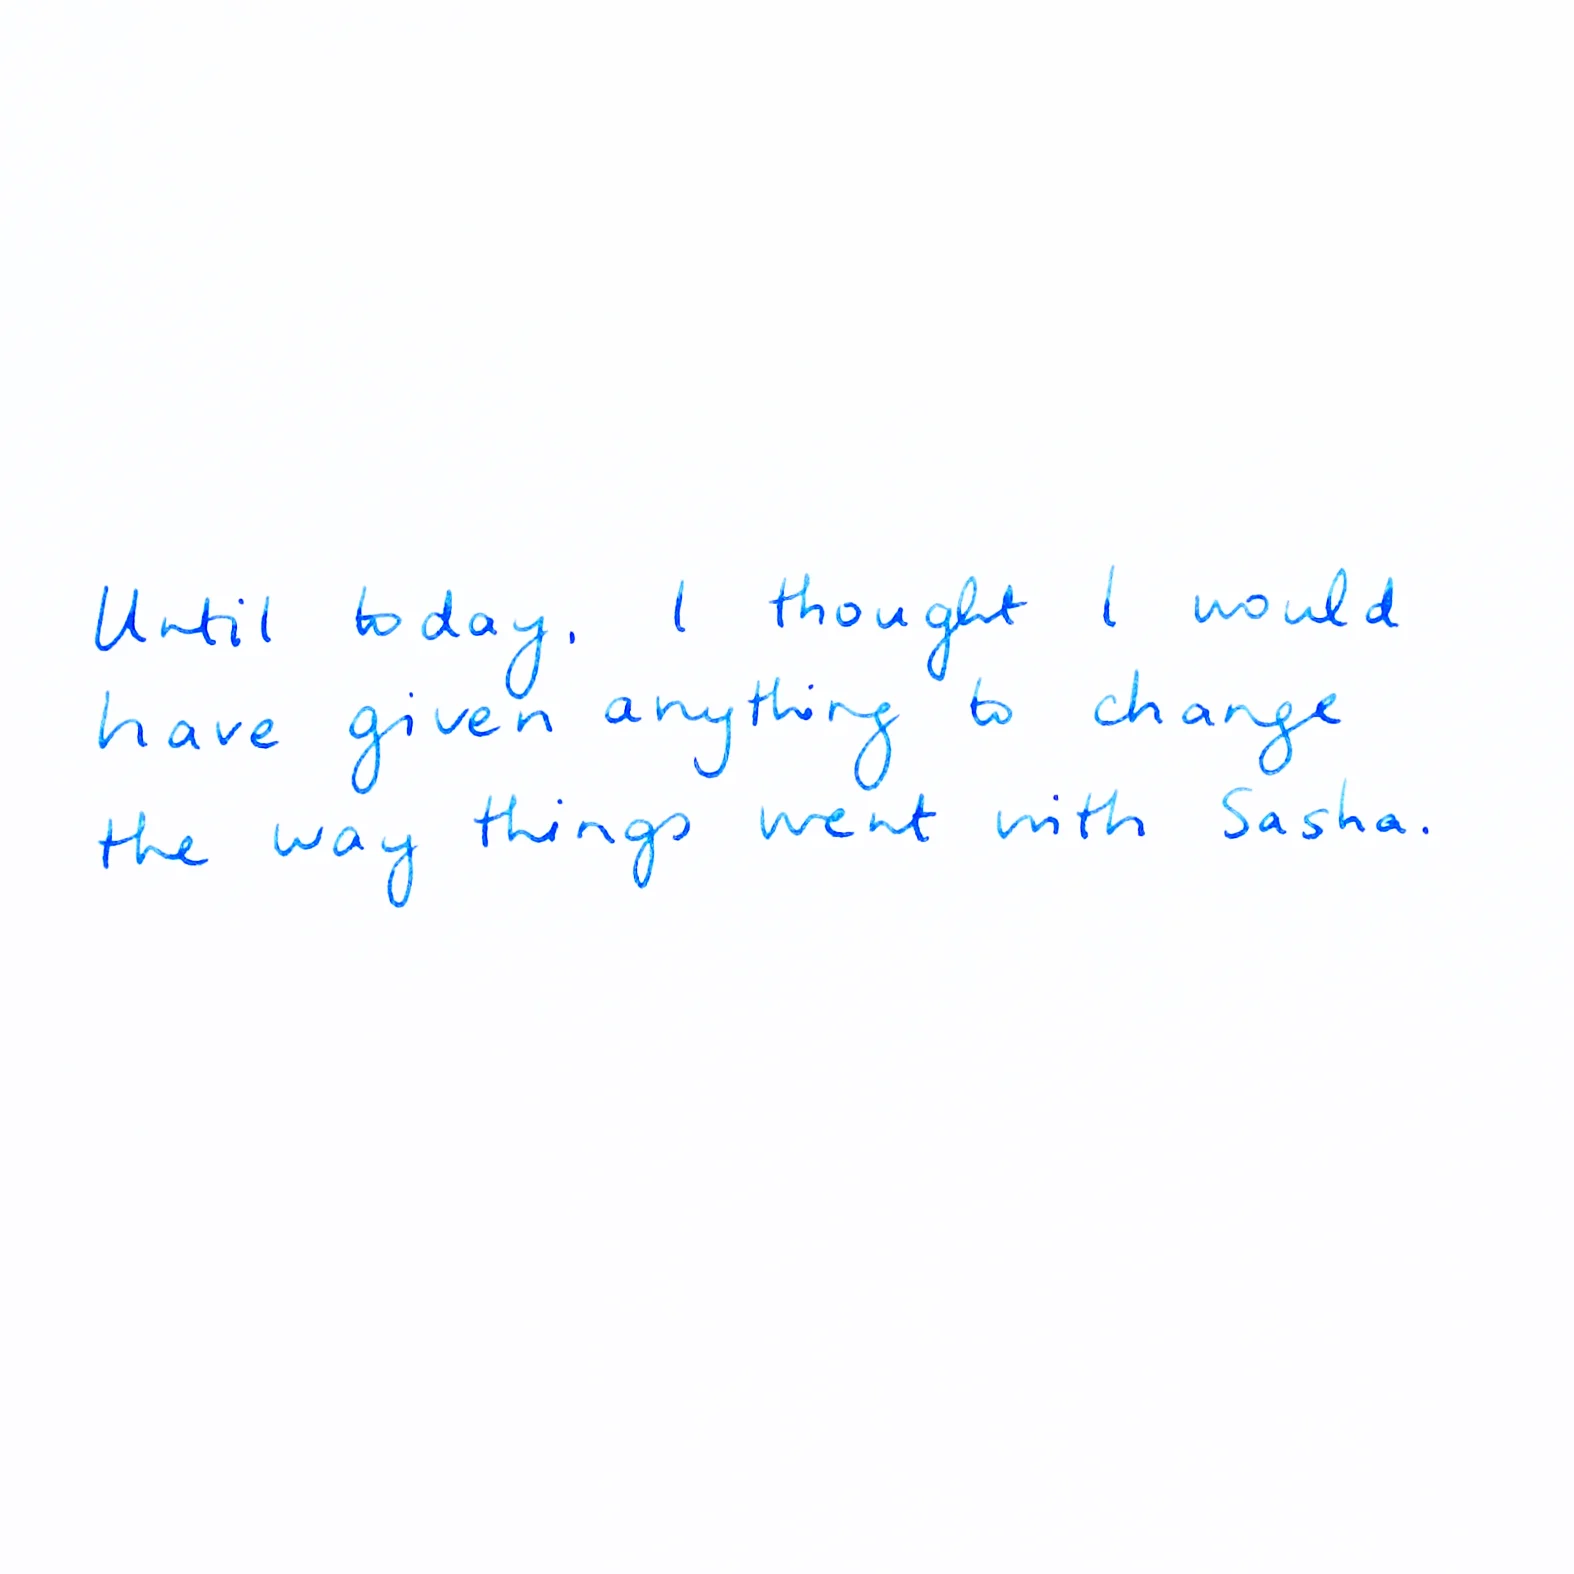 Until today, I thought I would
have given anything to change
the way things went with Sasha.